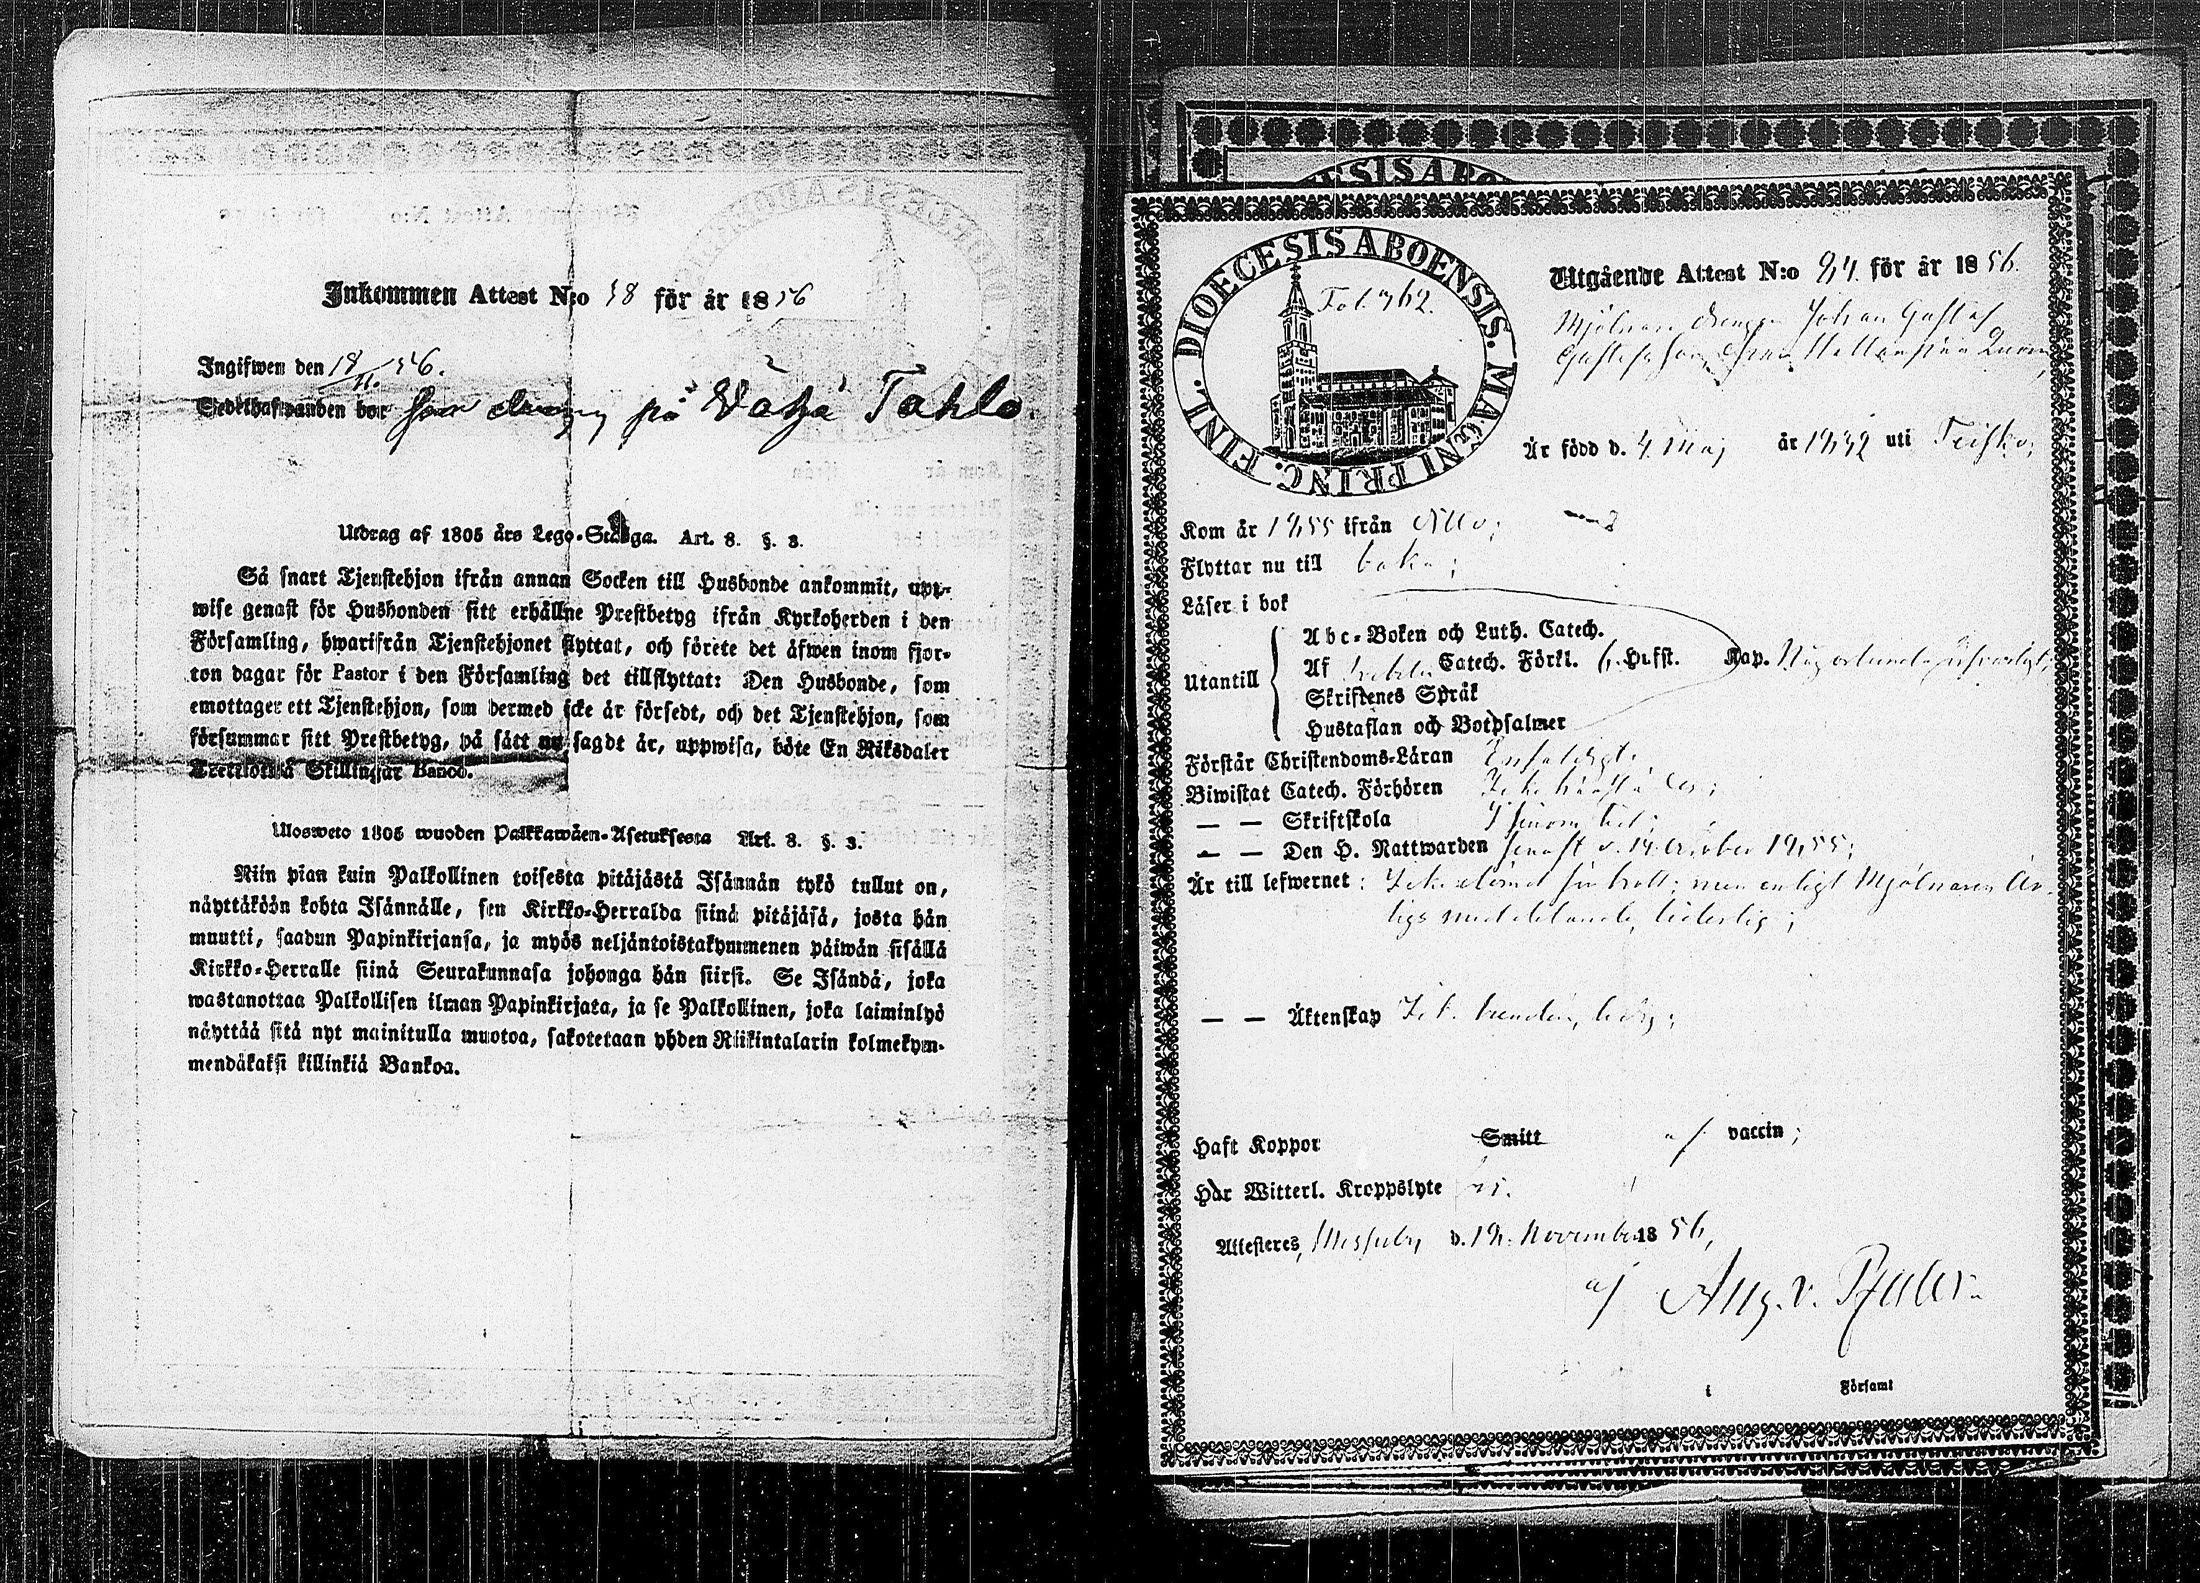 Inkommen Attest N:o 58 för år 1856
Ingifwen den 18/11 56.
Sedelhafwanden bor som dreng på Wätjä Tahlo.
Utdrag af 1805 års Lego-Stadga. Art. 8. §. 3.
Så snart Tjenstehjon ifrån annan Socken till Husbonde ankommit, upp-
wise genast för Husbonden sitt erhållne Prestbetyg ifrån Kyrkoherden i den
Församling, hwarifrån Tjenstehjonet flyttat, och förete det äfwen inom fjor-
ton dagar för Pastor i den Församling det tillflyttat: Den Husbonde, som
emottager ett Tjenstehjon, som dermed icke är försedt, och det Tjenstehjon, som
försummar sitt Prestbetyg, på sätt nu sagdt är, uppwisa, böte En Riksdaler
Trettiotwå Skillingar Banco.
Ulosweto 1805 wuoden Palkkawäen-Asetuksesta Art. 8. §. 3.
Niin pian kuin Palkollinen toisesta pitäjästä Isännän tykö tullut on,
näyttäköön kohta Isännälle, sen Kirkko-Herralda siinä pitäjäsä, josta hän
muutti, saadun Papinkirjansa, ja myös neljäntoistakymmenen päiwän sisällä
Kirkko-Herralle siinä Seurakunnasa johonga hän siirsi. Se Isändä, joka
wastanottaa Palkollisen ilman Papinkirjata, ja se Palkollinen, joka laiminlyö
näyttää sitä nyt mainitulla muotoa, sakotetaan yhden Riikintalarin kolmekym-
mendäkaksi killinkiä Bankoa.
DIOECESIS ABO
DIOECESIS ABOENSIS. MAGNI PRINC. FINL.
Fol. 762.
Utgående Attest N:o 84. för år 1856.
Mjölnare drengen Johan Gustaf
Gustafsson från
Är född d. 4 Maj år 1832 uti Teisko;
Kom år 1855 ifrån
Flyttar nu till baka;
Läser i bok
Utantill
Abc-Boken och Luth. Catech.
Af Catech. Förkl. Hufst. Kap. Någorlunda
Skriftenes Språk
Hustaflan och Botpsalmer
Förstår Christendoms-Läran Enfaldigt.
Biwistat Catech. Förhören Icke härstädes;
— — Skriftskola
— — Den H. Nattwarden senast d. 14 October 1855;
Är till lefwernet: Icke men enligt Mjölnaren
meddelande, liderlig;
— — Äktenskap Icke bunden, ledig;
Haft Koppor Smitt af vaccin;
Har Witterl. Kroppslyte ej.
Attesteras, Messuby d. 18 November 1856,
af Aug. v. Pfaler.
i Församl